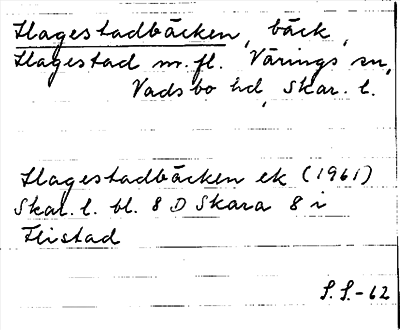 Hagestadbäcken, bäck,
Hagestad m.fl. Värings sn,
Vadsbo hd, Skar. l.
Hagestadbäcken ek (1961)
Skar. l. bl. 8 D Skara 8 i
Flistad
S.S.-62